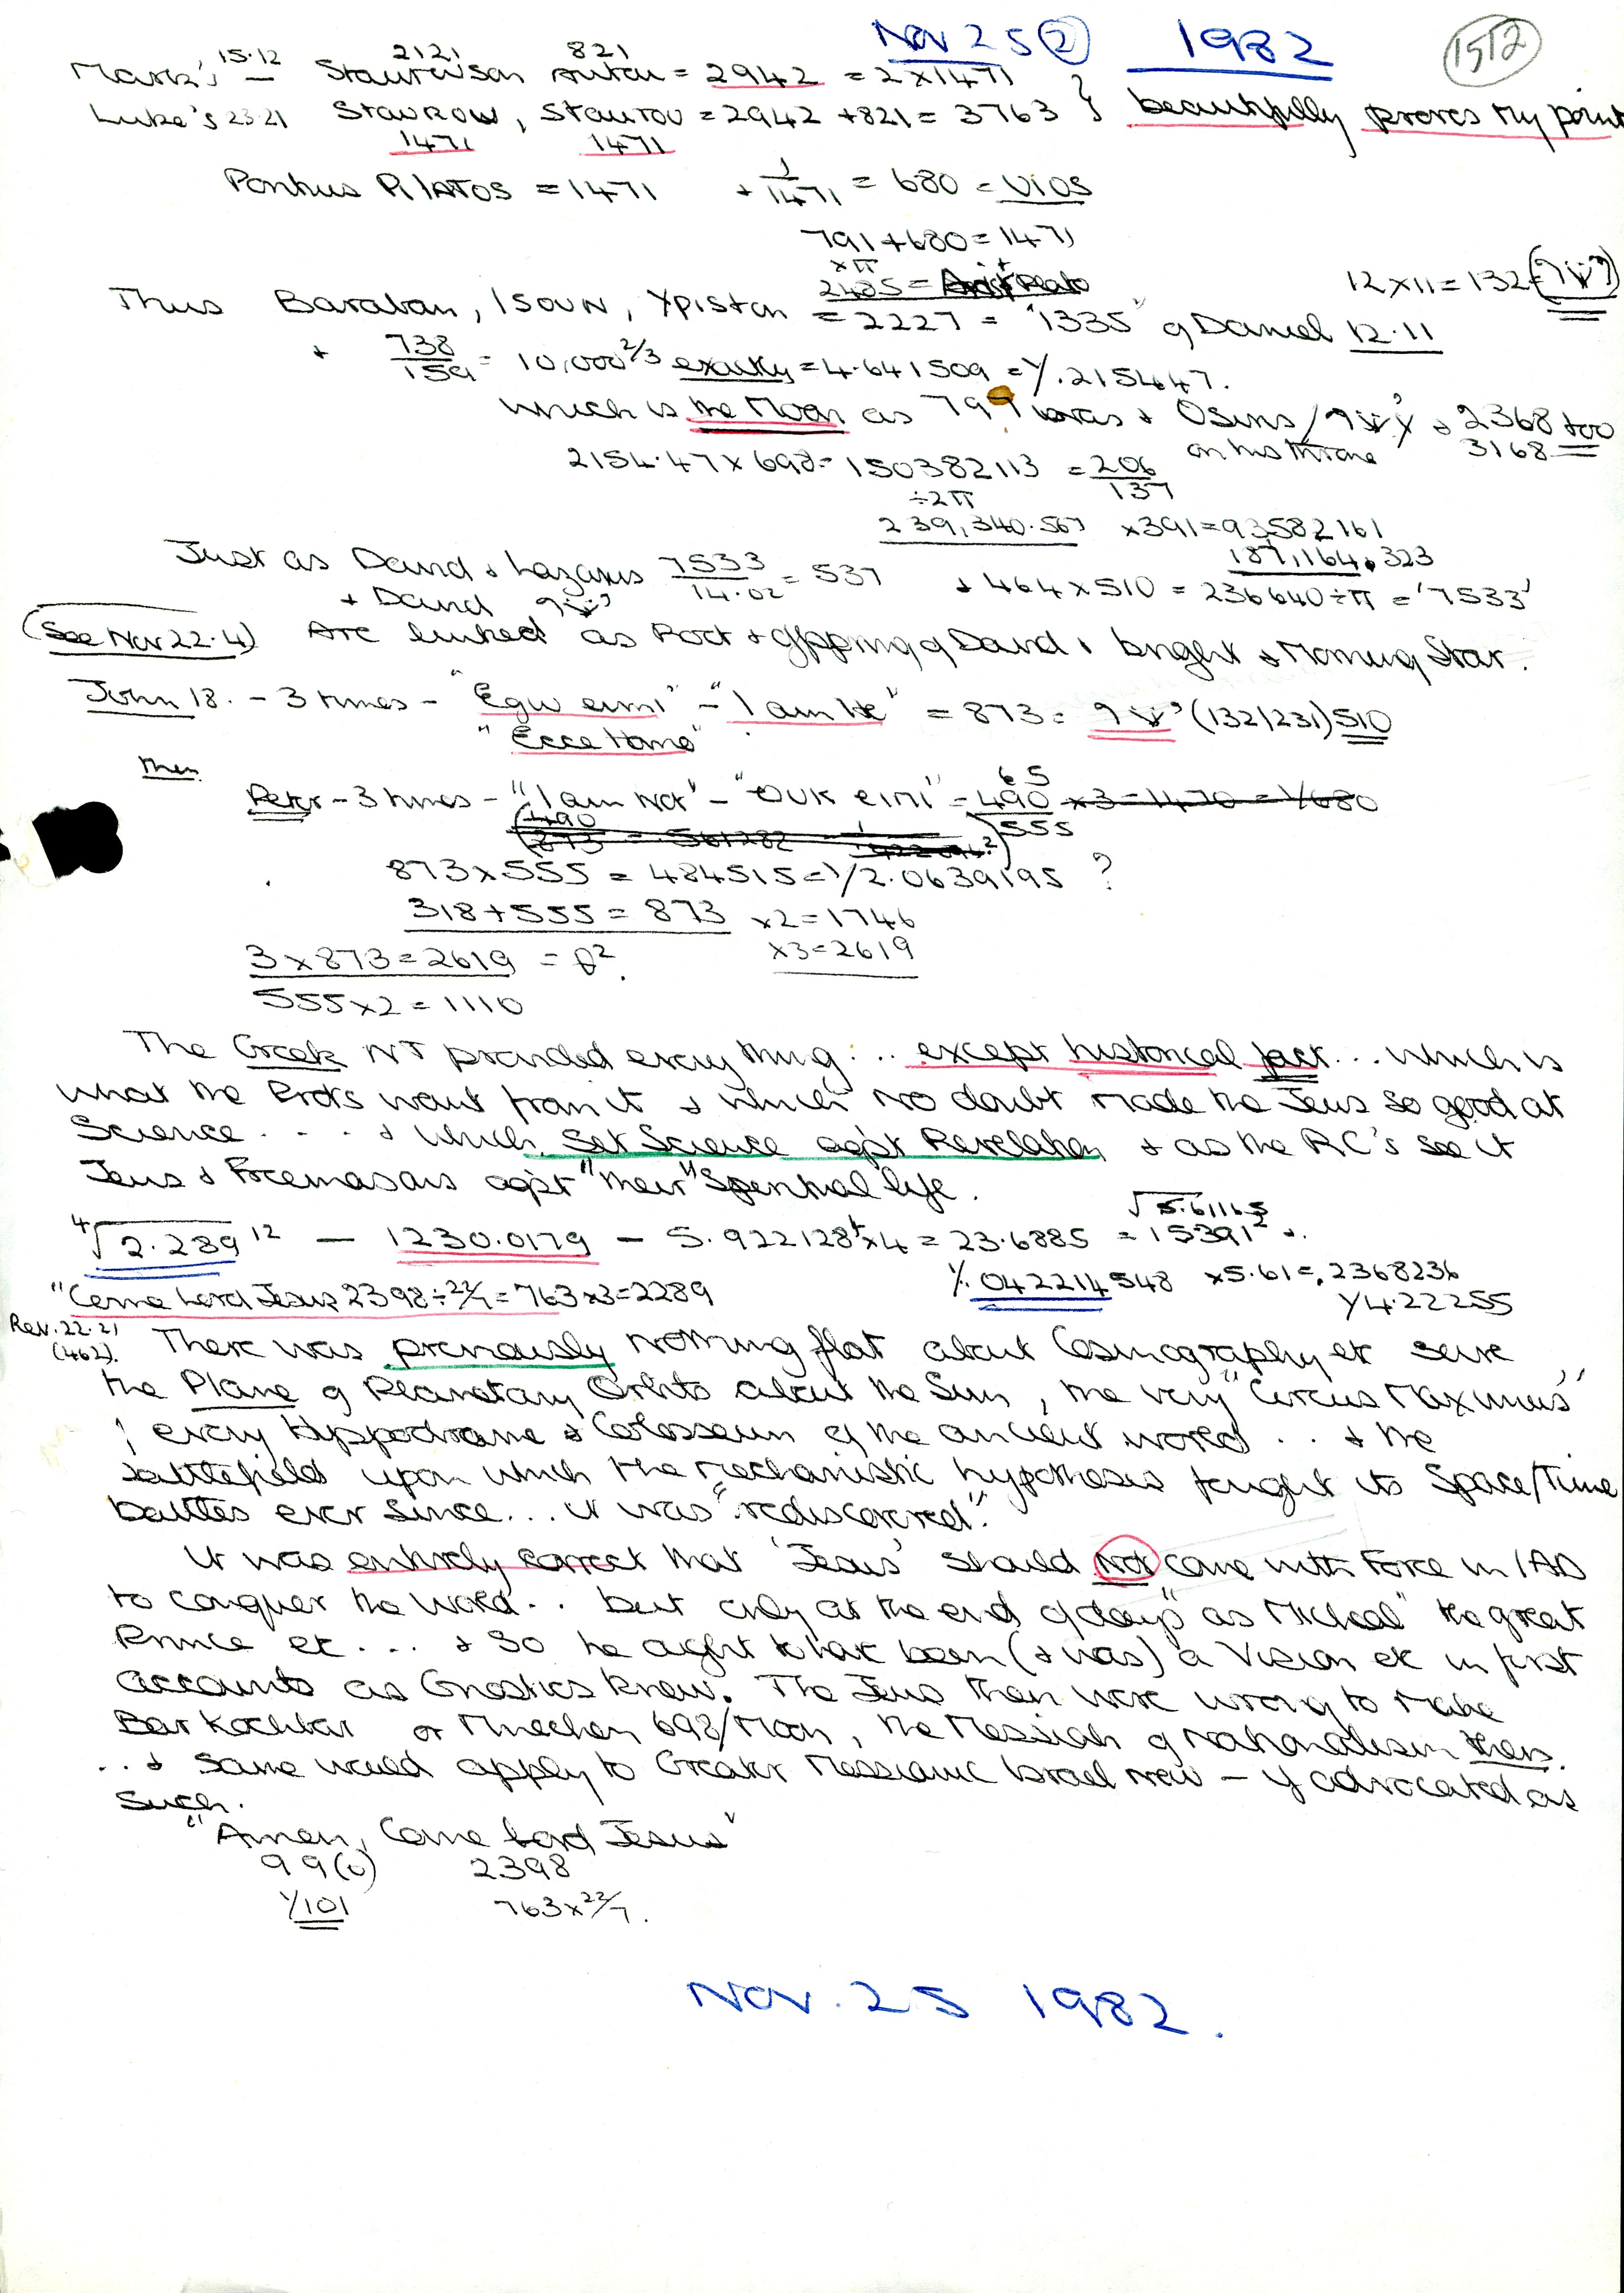 Nov 25 ② 1982 1512
15.12 2121 821
Mark's — Staurwson Auton = 2942 = 2x1471
Luke's 23.21 StauROW, Staurou = 2942 + 821 = 3763 } beautifully proves my point
1471 1471
Pontius PilATOS = 1471 + 1/1471 = 680 = UIOS
791 + 680 = 1471
xπ
2485 =
12x11 = 132
Thus Baraban, ISOUN, Xpiston = 2227 = "1335" of Daniel 12.11
+ 738/159 = 10,000^2/3 exactly = 4.641509 = 1/.215447.
which is the Moon as 799 & Osiris / & 2368 too
on his throne 3168
2154.47 x 698 = 150382113 = 206/137
÷2π
239,340.567 x391 = 93582161
187,164.323
Just as David & Lazarus 7533/14.02 = 537 + 464 x 510 = 236640 ÷ π = '7533'
+ David
(See Nov 22.4) Are linked as Root & offspring of David & bright & Morning Star.
John 18. - 3 times - "Egw eimi" - "I am He" = 873 = (132/231) 510
"Ecce Homo"
Then
Peter - 3 times - "I am Not" - "OUK eimi" - 490 x3 = 1470 = 1/680
65
555
873 x 555 = 484515 = 1/2.0639195 ?
318 + 555 = 873 x2 = 1746
3 x 873 = 2619 = x3 = 2619
555 x 2 = 1110
The Greek NT provided every thing... except historical fact... which is
what the Prots want from it & which no doubt made the Jews so good at
Science.... & which set Science agst Revelation & as the RC's see it
Jews & Freemasons agst "their" Spiritual life.
4√2.289 12 — 1230.0179 — 5.922128 x4 = 23.6885 = 15391²
√5.61165
1/.042214548 x5.61 = .2368236
"Come Lord Jesus 2398 ÷ 22/7 = 763 x3 = 2289
1/4.22255
Rev. 22.21
(462).
There was previously nothing flat about Cosmography etc save
the Plane of Planetary Orbits about the Sun, the very "Circus Maximus"
of every Hippodrome & Colosseum of the ancient world... & the
battlefield upon which the mechanistic hypotheses fought its Space/Time
battles ever since... it was "rediscovered".
It was entirely correct that 'Jesus' should Not come with Force in 1AD
to conquer the World.. but only at the end of days" as Micheal" the great
Prince etc.... & so he ought to have been (& was) a Vision etc in first
accounts as Gnostics knew. The Jews then were wrong to make
Bar Kochbar or 698/Moon, the Messiah of Nationalism then.
.. & same would apply to Greater Messianic Israel now — if advocated as
such.
"Amen, Come Lord Jesus"
99(0) 2398
1/101 763 x 22/7.
Nov. 25 1982.